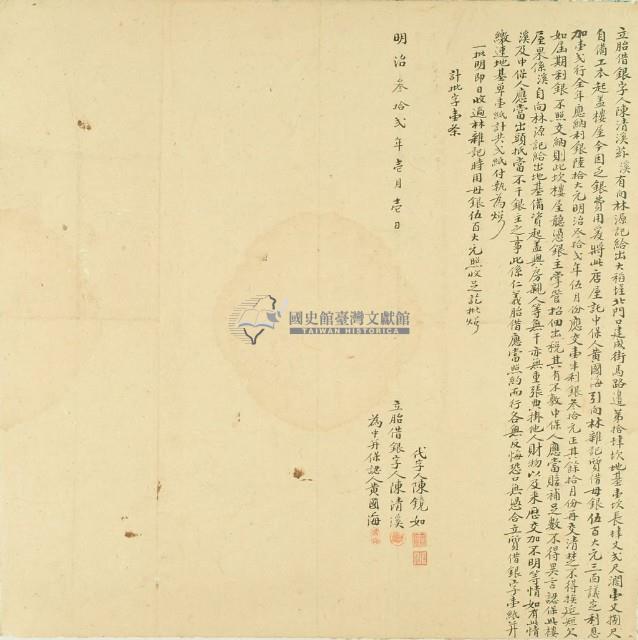 立胎借銀字人陳清溪蘇溪有向林源記給出大稻埕北門口建成街馬路邊第拾肆坎地基壹坎長肆丈弍尺濶壹丈捌尺
自備工本起盖樓屋今因乏銀費用爰將此店屋託中保人黃國海引向林雜記質借母銀伍百大元三面議定利息
加壹弍行全年應納利銀陸拾大元明治叁拾弍年伍月份應交壹半利銀叁拾元正其餘拾月份再交清楚不得挨延短欠
如屆期利銀不照交納則此坎樓屋聽憑銀主掌管招佃出稅其有不敷中保人應當賠補足數不得異言認保此樓
屋果係溪自向林源記給出地基備資起盖與房親人等無干亦無重張典掛他人財物以及來歷交加不明等情如有此情
溪及中保人應當出頭抵當不干銀主之事此係仁義胎借應當照約而行各無反悔恐口無憑合立質借銀字壹紙并
繳連地基單壹紙計共弍紙付執為炤
一批明即日收過林雜記時用母銀伍百大元照收足訖批炤
計批字壹条
明治叁拾弍年壱月壱日
代字人陳鏡如
立胎借銀字人陳清溪
為中并保認人黃國海
國史館臺灣文獻館
TAIWAN HISTORICA